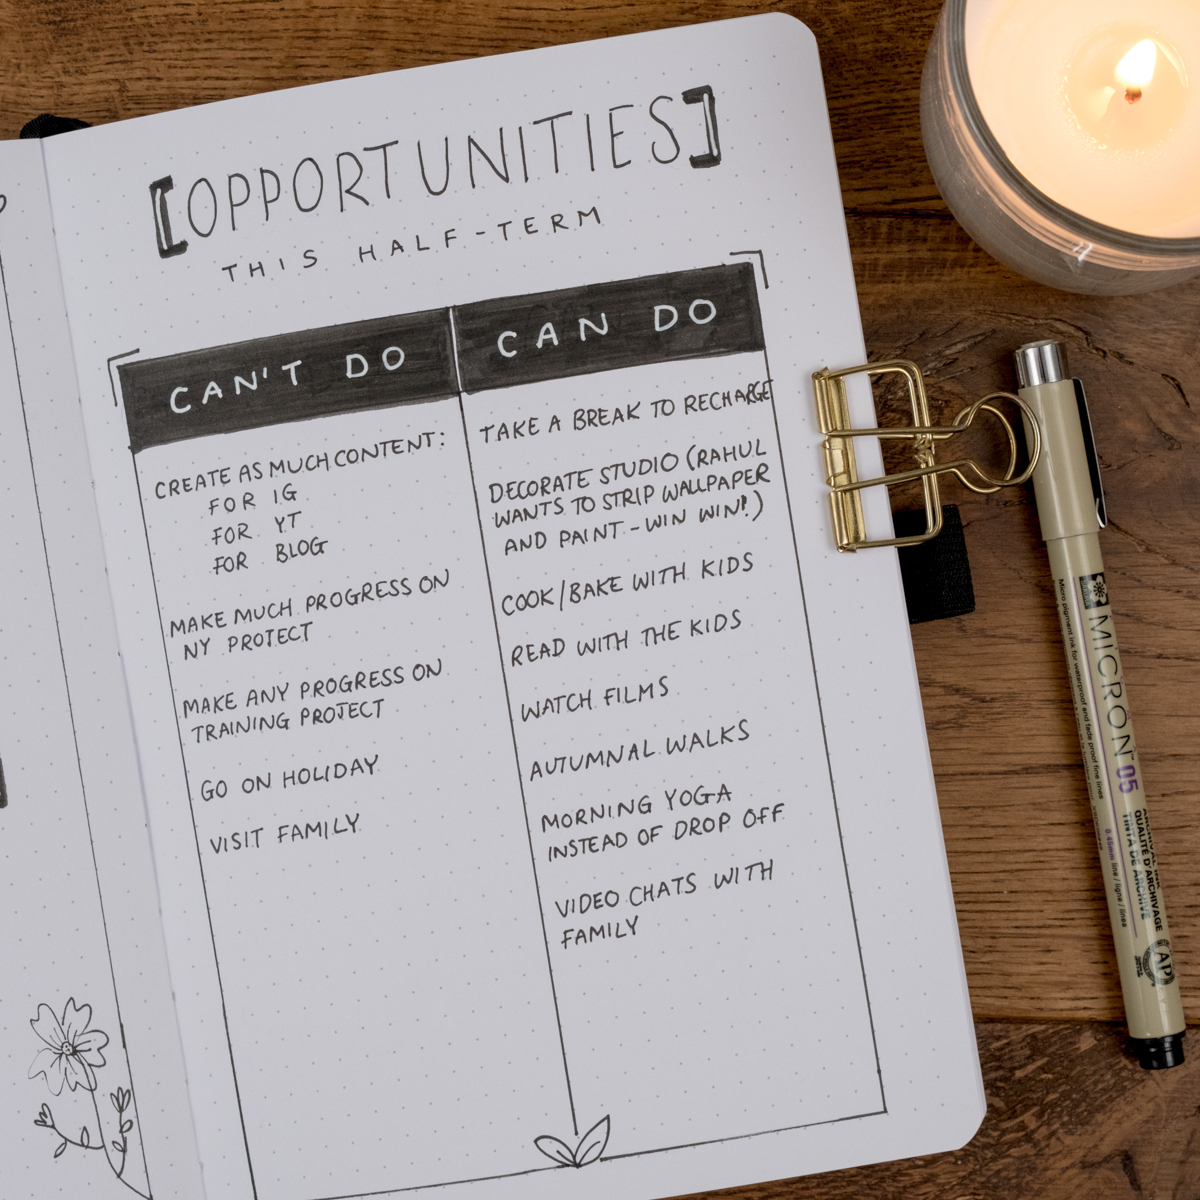 [OPPORTUNITIES]
THIS HALF-TERM
CAN'T DO
CREATE AS MUCH CONTENT:
FOR IG
FOR YT
FOR BLOG
MAKE MUCH PROGRESS ON
NY PROJECT
MAKE ANY PROGRESS ON
TRAINING PROJECT
GO ON HOLIDAY
VISIT FAMILY
CAN DO
TAKE A BREAK TO RECHARGE
DECORATE STUDIO (RAHUL
WANTS TO STRIP WALLPAPER
AND PAINT - WIN WIN!)
COOK/BAKE WITH KIDS
READ WITH THE KIDS
WATCH FILMS
AUTUMNAL WALKS
MORNING YOGA
INSTEAD OF DROP OFF
VIDEO CHATS WITH
FAMILY
MICRON 05
Micro pigment ink for waterproof and fade proof fine lines
0.45mm line / ligne / línea
QUALITÉ D'ARCHIVAGE
TINTA DE ARCHIVE
AP